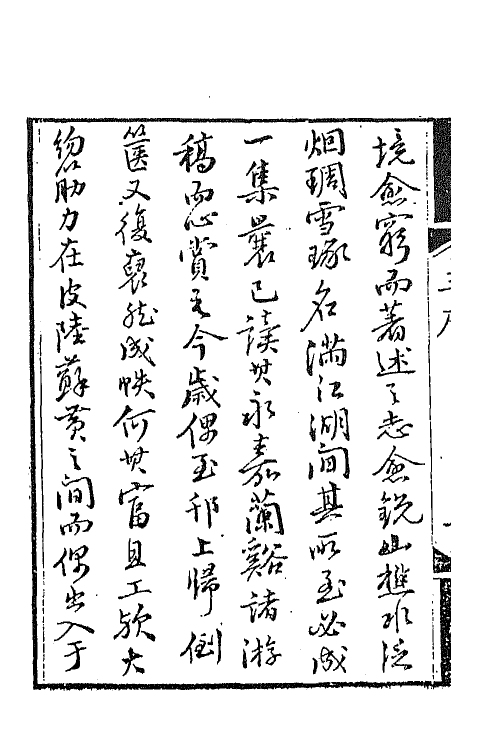 境愈窮而著述之志愈銳山樵水漁
烟琱雪琢名滿江湖間其所至必成
一集曩已讀其永嘉蘭谿諸游
稿而心賞之今歲偶至邗上歸倒
篋又復裒然成帙何其富且工歟大
約肋力在皮陸蘇黄之間而偶出入于